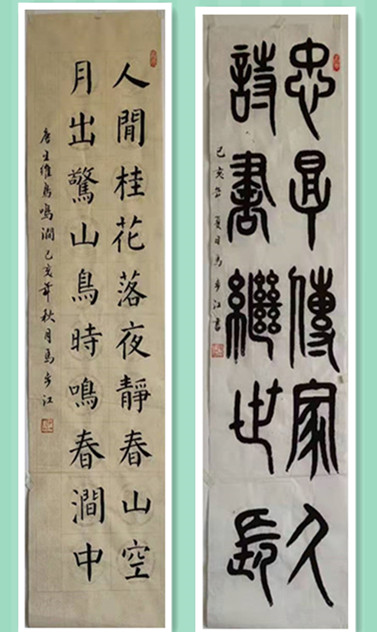 人閒桂花落夜靜春山空
月出驚山鳥時鳴春澗中
唐王維鳥鳴澗己亥年秋月馬步江
忠厚傳家久
詩書繼世長
己亥年夏月馬步江書